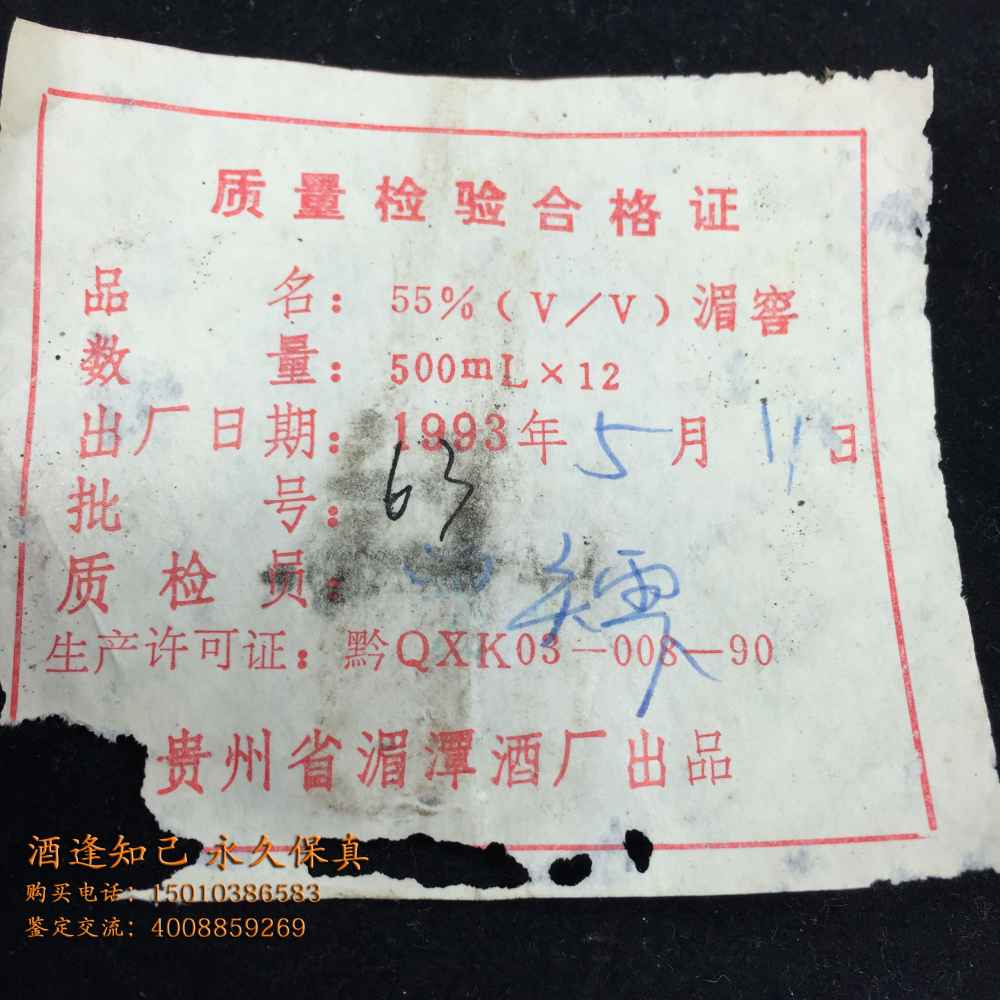 质量检验合格证
品名：55%（V/V）湄窖
数量：500mL×12
出厂日期：1993年5月11日
批号：63
质检员：
生产许可证：黔QXK03-008-90
贵州省湄潭酒厂出品
酒逢知己 永久保真
购买电话：15010386583
鉴定交流：4008859269